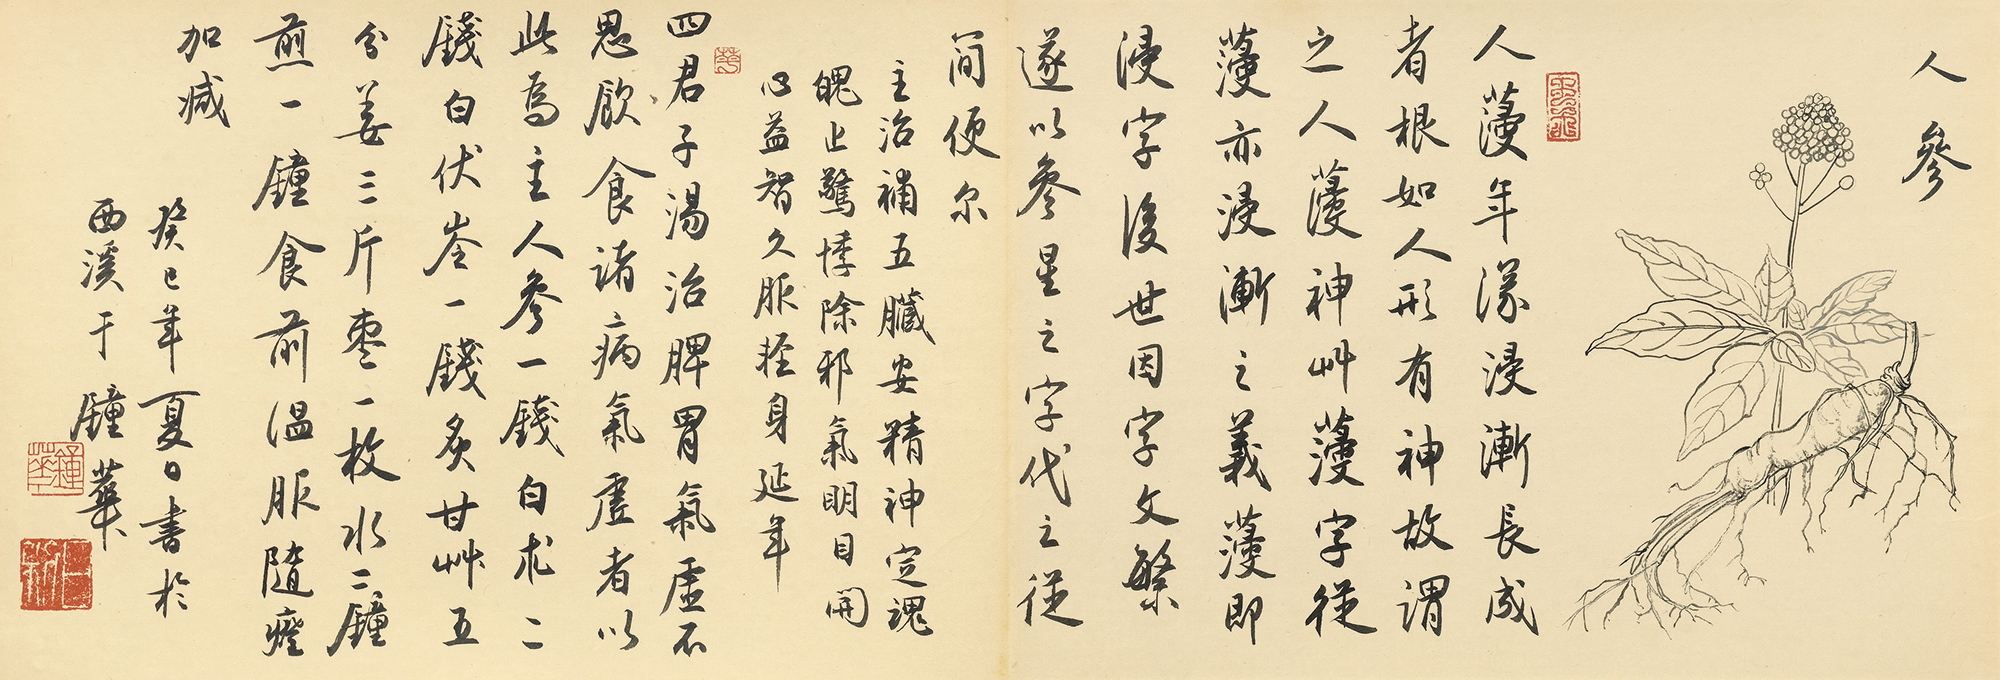 人參
人薓年深浸漸長成
者根如人形有神故謂
之人薓神艸薓字從
薓亦浸漸之義薓即
浸字後世因字文繁
遂以參星之字代之從
简便尔
主治補五臟安精神定魂
魄止驚悸除邪氣明目開
心益智久服輕身延年
四君子湯治脾胃氣虛不
思飲食諸病氣虛者以
此為主人參一錢白朮二
錢白伏苓一錢炙甘艸五
分姜三斤枣一枚水二鐘
煎一鐘食前温服隨癥
加减
癸巳年夏日書於
西溪于鐘華